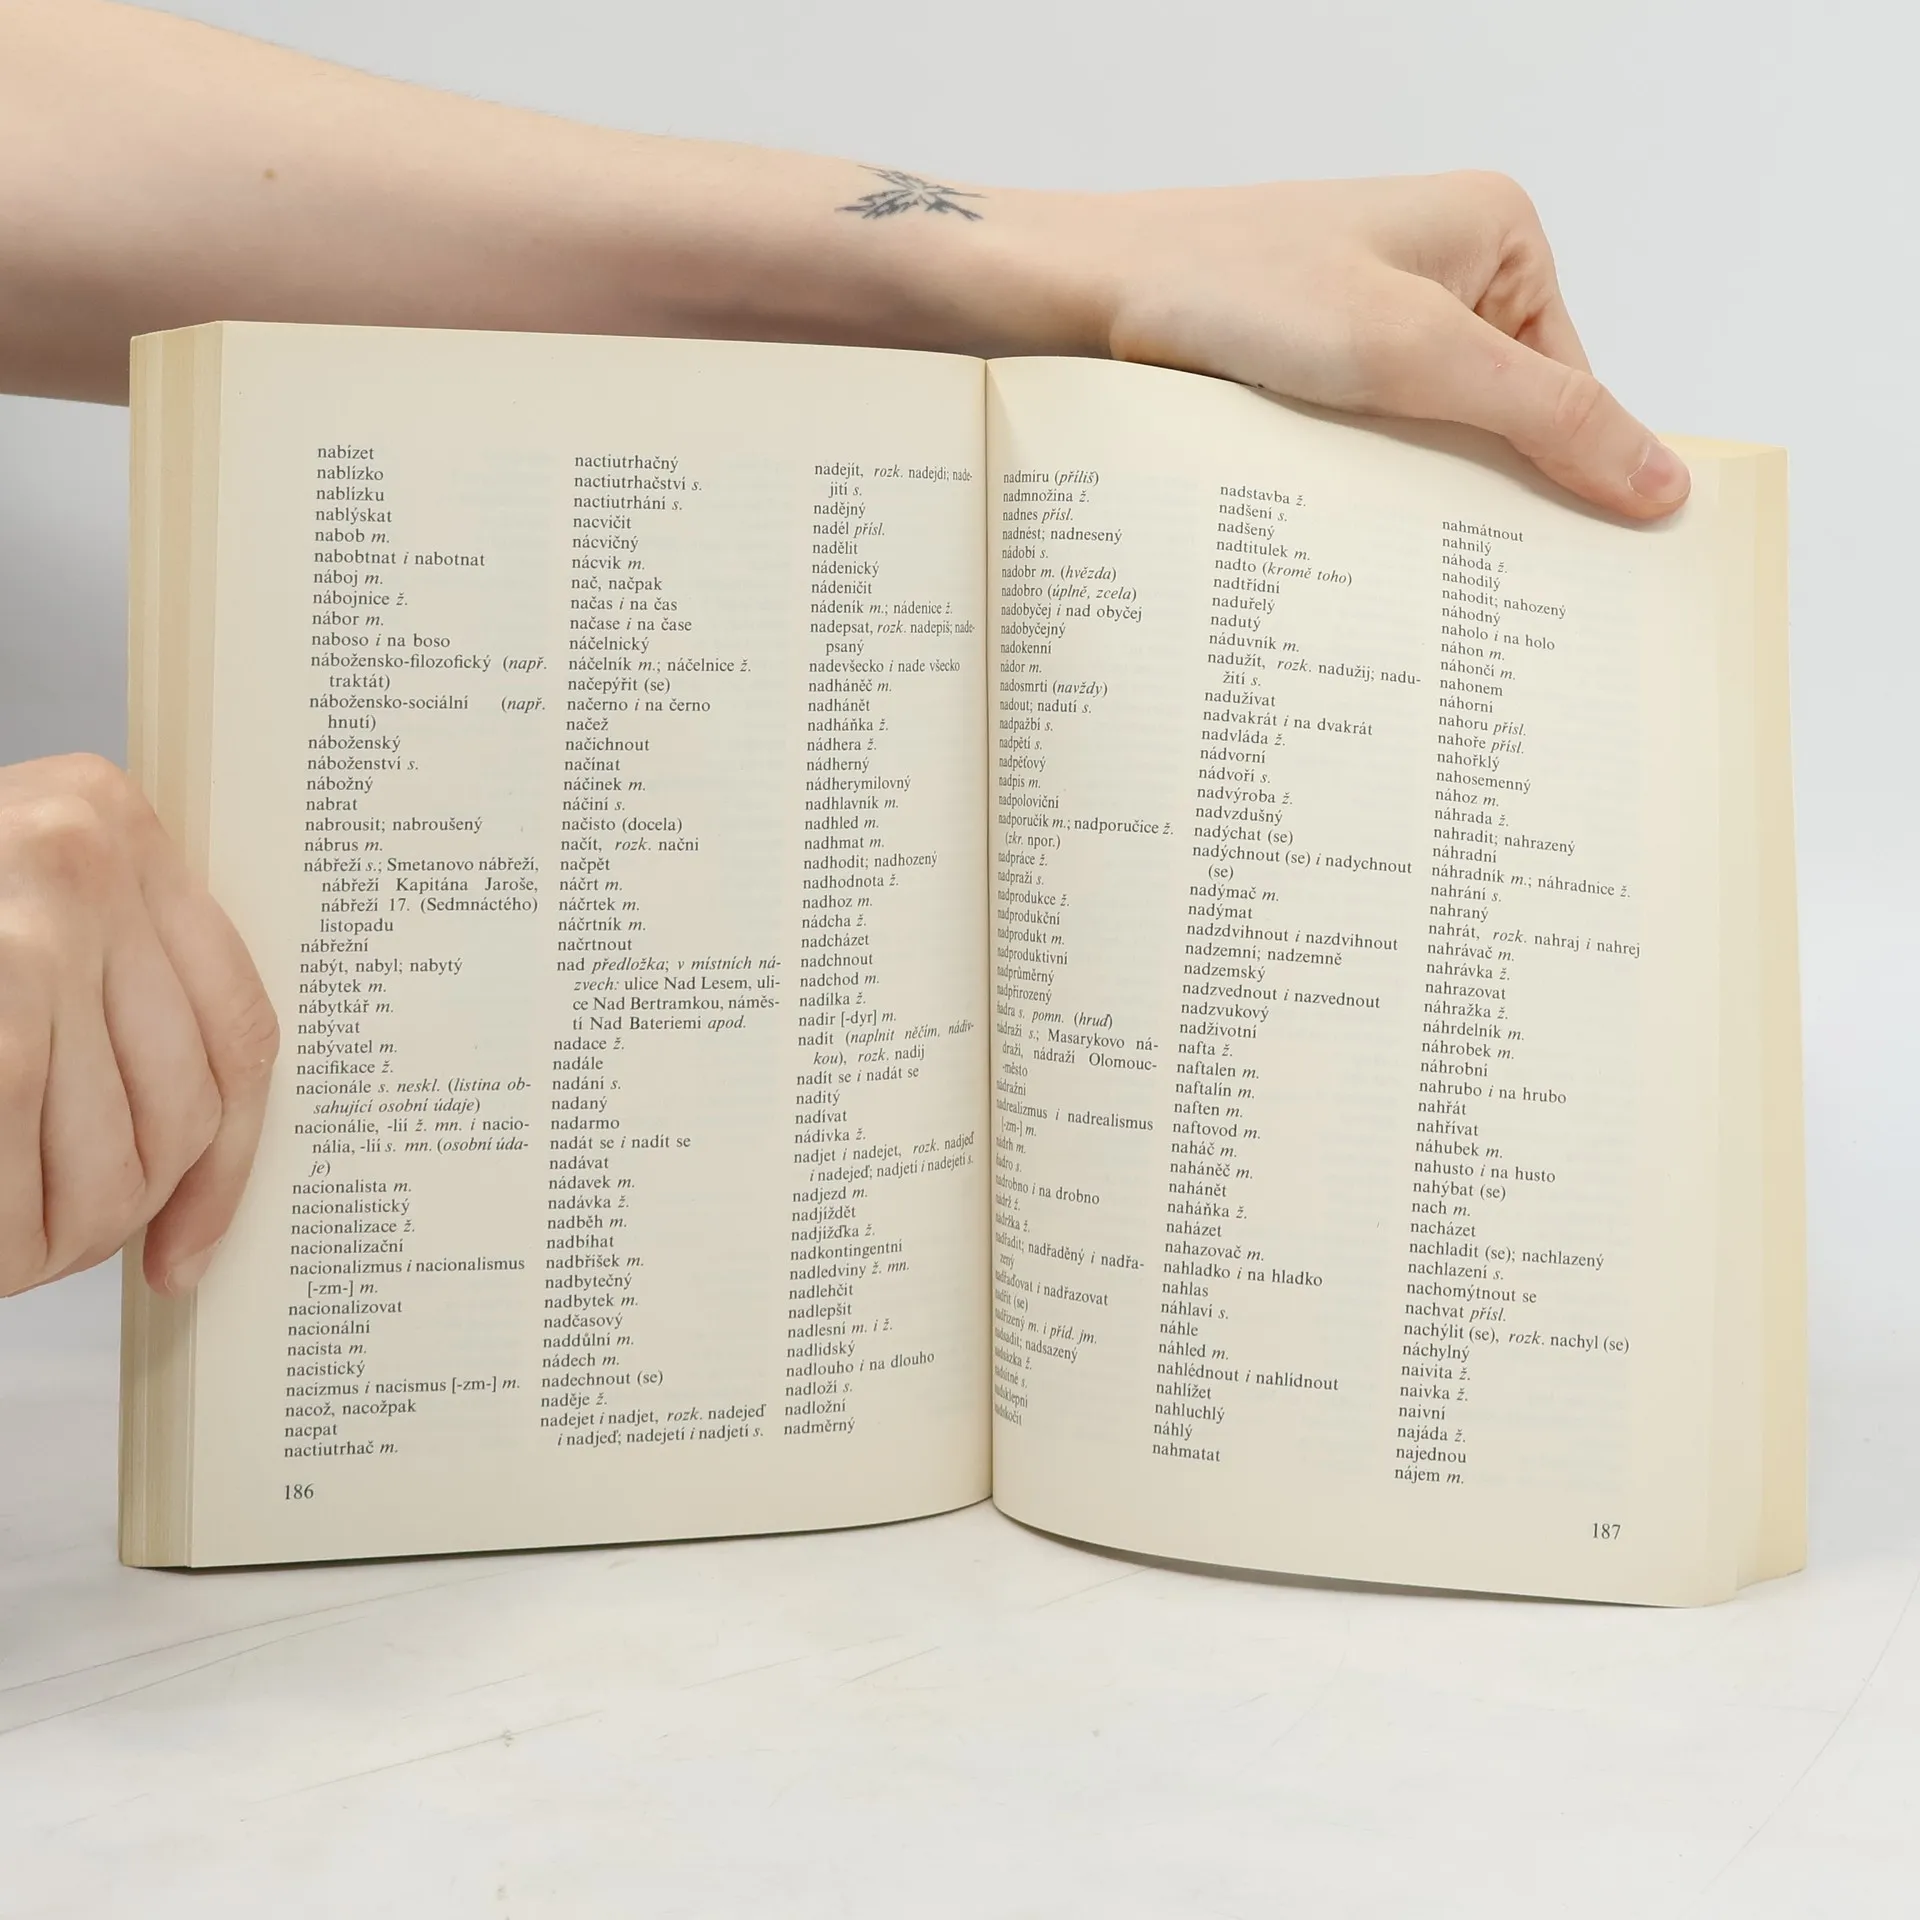 nabízet
nablízko
nablízku
nablýskat
nabob m.
nabobtnat i nabotnat
náboj m.
nábojnice ž.
nábor m.
naboso i na boso
nábožensko-filozofický (např.
traktát)
nábožensko-sociální (např.
hnutí)
náboženský
náboženství s.
nábožný
nabrat
nabrousit; nabroušený
nábrus m.
nábřeží s.; Smetanovo nábřeží,
nábřeží Kapitána Jaroše,
nábřeží 17. (Sedmnáctého)
listopadu
nábřežní
nabýt, nabyl; nabytý
nábytek m.
nábytkář m.
nabývat
nabyvatel m.
nacifikace ž.
nacionále s. neskl. (listina ob-
sahující osobní údaje)
nacionálie, -lií ž. mn. i nacio-
nália, -lií s. mn. (osobní úda-
je)
nacionalista m.
nacionalistický
nacionalizace ž.
nacionalizační
nacionalizmus i nacionalismus
[-zm-] m.
nacionalizovat
nacionální
nacista m.
nacistický
nacizmus i nacismus [-zm-] m.
nacož, nacožpak
nacpat
nactiutrhač m.
186
nactiutrhačný
nactiutrhačství s.
nactiutrhání s.
nacvičit
nácvičný
nácvik m.
nač, načpak
načas i na čas
načase i na čase
náčelnický
náčelník m.; náčelnice ž.
načepýřit (se)
načerno i na černo
načež
načichnout
načínat
náčinek m.
náčiní s.
načisto (docela)
načít, rozk. načni
načpět
náčrt m.
náčrtek m.
náčrtník m.
načrtnout
nad předložka; v místních ná-
zvech: ulice Nad Lesem, uli-
ce Nad Bertramkou, náměs-
tí Nad Bateriemi apod.
nadace ž.
nadále
nadání s.
nadaný
nadarmo
nadát se i nadít se
nadávat
nádavek m.
nadávka ž.
nadběh m.
nadbíhat
nadbřišek m.
nadbytečný
nadbytek m.
nadčasový
naddůlní m.
nádech m.
nadechnout (se)
naděje ž.
nadejet i nadjet, rozk. nadejeď
i nadjeď; nadejetí i nadjetí s.
nadejít, rozk. nadejdi; nade-
jití s.
nadějný
nadél přísl.
nadělit
nádenický
nádeničit
nádeník m.; nádenice ž.
nadepsat, rozk. nadepiš; nade-
psaný
nadevšecko i nade všecko
nadháněč m.
nadhánět
nadháňka ž.
nádhera ž.
nádherný
nádherymilovný
nadhlavník m.
nadhled m.
nadhmat m.
nadhodit; nadhozený
nadhodnota ž.
nadhoz m.
nádcha ž.
nadcházet
nadchnout
nadchod m.
nadílka ž.
nadir [-dyr] m.
nadít (naplnit něčím, nádiv-
kou), rozk. nadij
nadít se i nadát se
naditý
nadívat
nádivka ž.
nadjet i nadejet, rozk. nadjeď
i nadejeď; nadjetí i nadejetí s.
nadjezd m.
nadjíždět
nadjížďka ž.
nadkontingentní
nadledviny ž. mn.
nadlehčit
nadlepšit
nadlesní m. i ž.
nadlidský
nadlouho i na dlouho
nadloží s.
nadložní
nadměrný
nadmíru (příliš)
nadmnožina ž.
nadnes přísl.
nadnést; nadnesený
nádobí s.
nadobr m. (hvězda)
nadobro (úplně, zcela)
nadobyčej i nad obyčej
nadobyčejný
nadokenní
nádor m.
nadosmrti (navždy)
nadout; nadutí s.
nadpažbí s.
nadpětí s.
nadpěťový
nadpis m.
nadpoloviční
nadporučík m.; nadporučice ž.
(zkr. npor.)
nadpráce ž.
nadpraží s.
nadprodukce ž.
nadprodukční
nadprodukt m.
nadproduktivní
nadprůměrný
nadpřirozený
ňadra s. pomn. (hruď)
nádraží s.; Masarykovo ná-
draží, nádraží Olomouc-
-město
nádražní
nadrealizmus i nadrealismus
[-zm-] m.
nádrh m.
ňadro s.
nadrobno i na drobno
nádrž ž.
nádržka ž.
nadřadit; nadřaděný i nadřa-
zený
nadřaďovat i nadřazovat
nadřít (se)
nadřízený m. i příd. jm.
nadsadit; nadsazený
nadsázka ž.
nadsklepní
nadskočit
nadstavba ž.
nadšení s.
nadšený
nadtitulek m.
nadto (kromě toho)
nadtřídní
naduřelý
nadutý
náduvník m.
nadužít, rozk. nadužij; nadu-
žití s.
nadužívat
nadvakrát i na dvakrát
nadvláda ž.
nádvorní
nádvoří s.
nadvýroba ž.
nadvzdušný
nadýchat (se)
nadýchnout (se) i nadychnout
(se)
nadýmač m.
nadýmat
nadzdvihnout i nazdvihnout
nadzemní; nadzemně
nadzemský
nadzvednout i nazvednout
nadzvukový
nadživotní
nafta ž.
naftalen m.
naftalín m.
naften m.
naftovod m.
naháč m.
naháněč m.
nahánět
naháňka ž.
naházet
nahazovač m.
nahladko i na hladko
nahlas
náhlaví s.
náhle
náhled m.
nahlédnout i nahlídnout
nahlížet
nahluchlý
náhlý
nahmatat
nahmátnout
nahnilý
náhoda ž.
nahodilý
nahodit; nahozený
náhodný
naholo i na holo
náhon m.
náhončí m.
nahonem
náhorní
nahoru přísl.
nahoře přísl.
nahořklý
nahosemenný
nához m.
náhrada ž.
nahradit; nahrazený
náhradní
náhradník m.; náhradnice ž.
nahrání s.
nahraný
nahrát, rozk. nahraj i nahrej
nahrávač m.
nahrávka ž.
nahrazovat
náhražka ž.
náhrdelník m.
náhrobek m.
náhrobní
nahrubo i na hrubo
nahřát
nahřívat
náhubek m.
nahusto i na husto
nahýbat (se)
nach m.
nacházet
nachladit (se); nachlazený
nachlazení s.
nachomýtnout se
nachvat přísl.
nachýlit (se), rozk. nachyl (se)
náchylný
naivita ž.
naivka ž.
naivní
najáda ž.
najednou
nájem m.
187